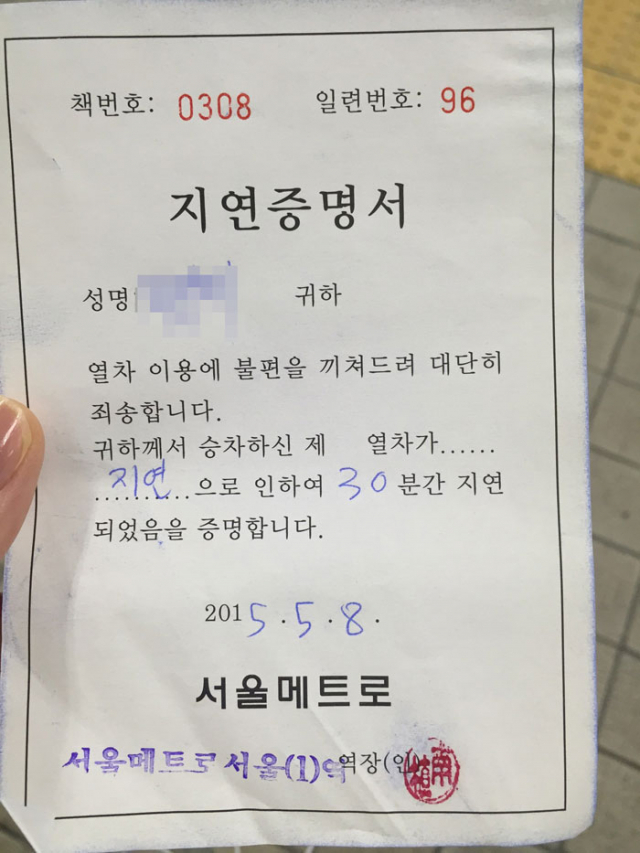 책번호: 0308 일련번호: 96
지연증명서
성명 귀하
열차 이용에 불편을 끼쳐드려 대단히
죄송합니다.
귀하께서 승차하신 제 열차가......
...지연...으로 인하여 30 분간 지연
되었음을 증명합니다.
2015.5.8.
서울메트로
서울메트로서울(1)역 역장(인)